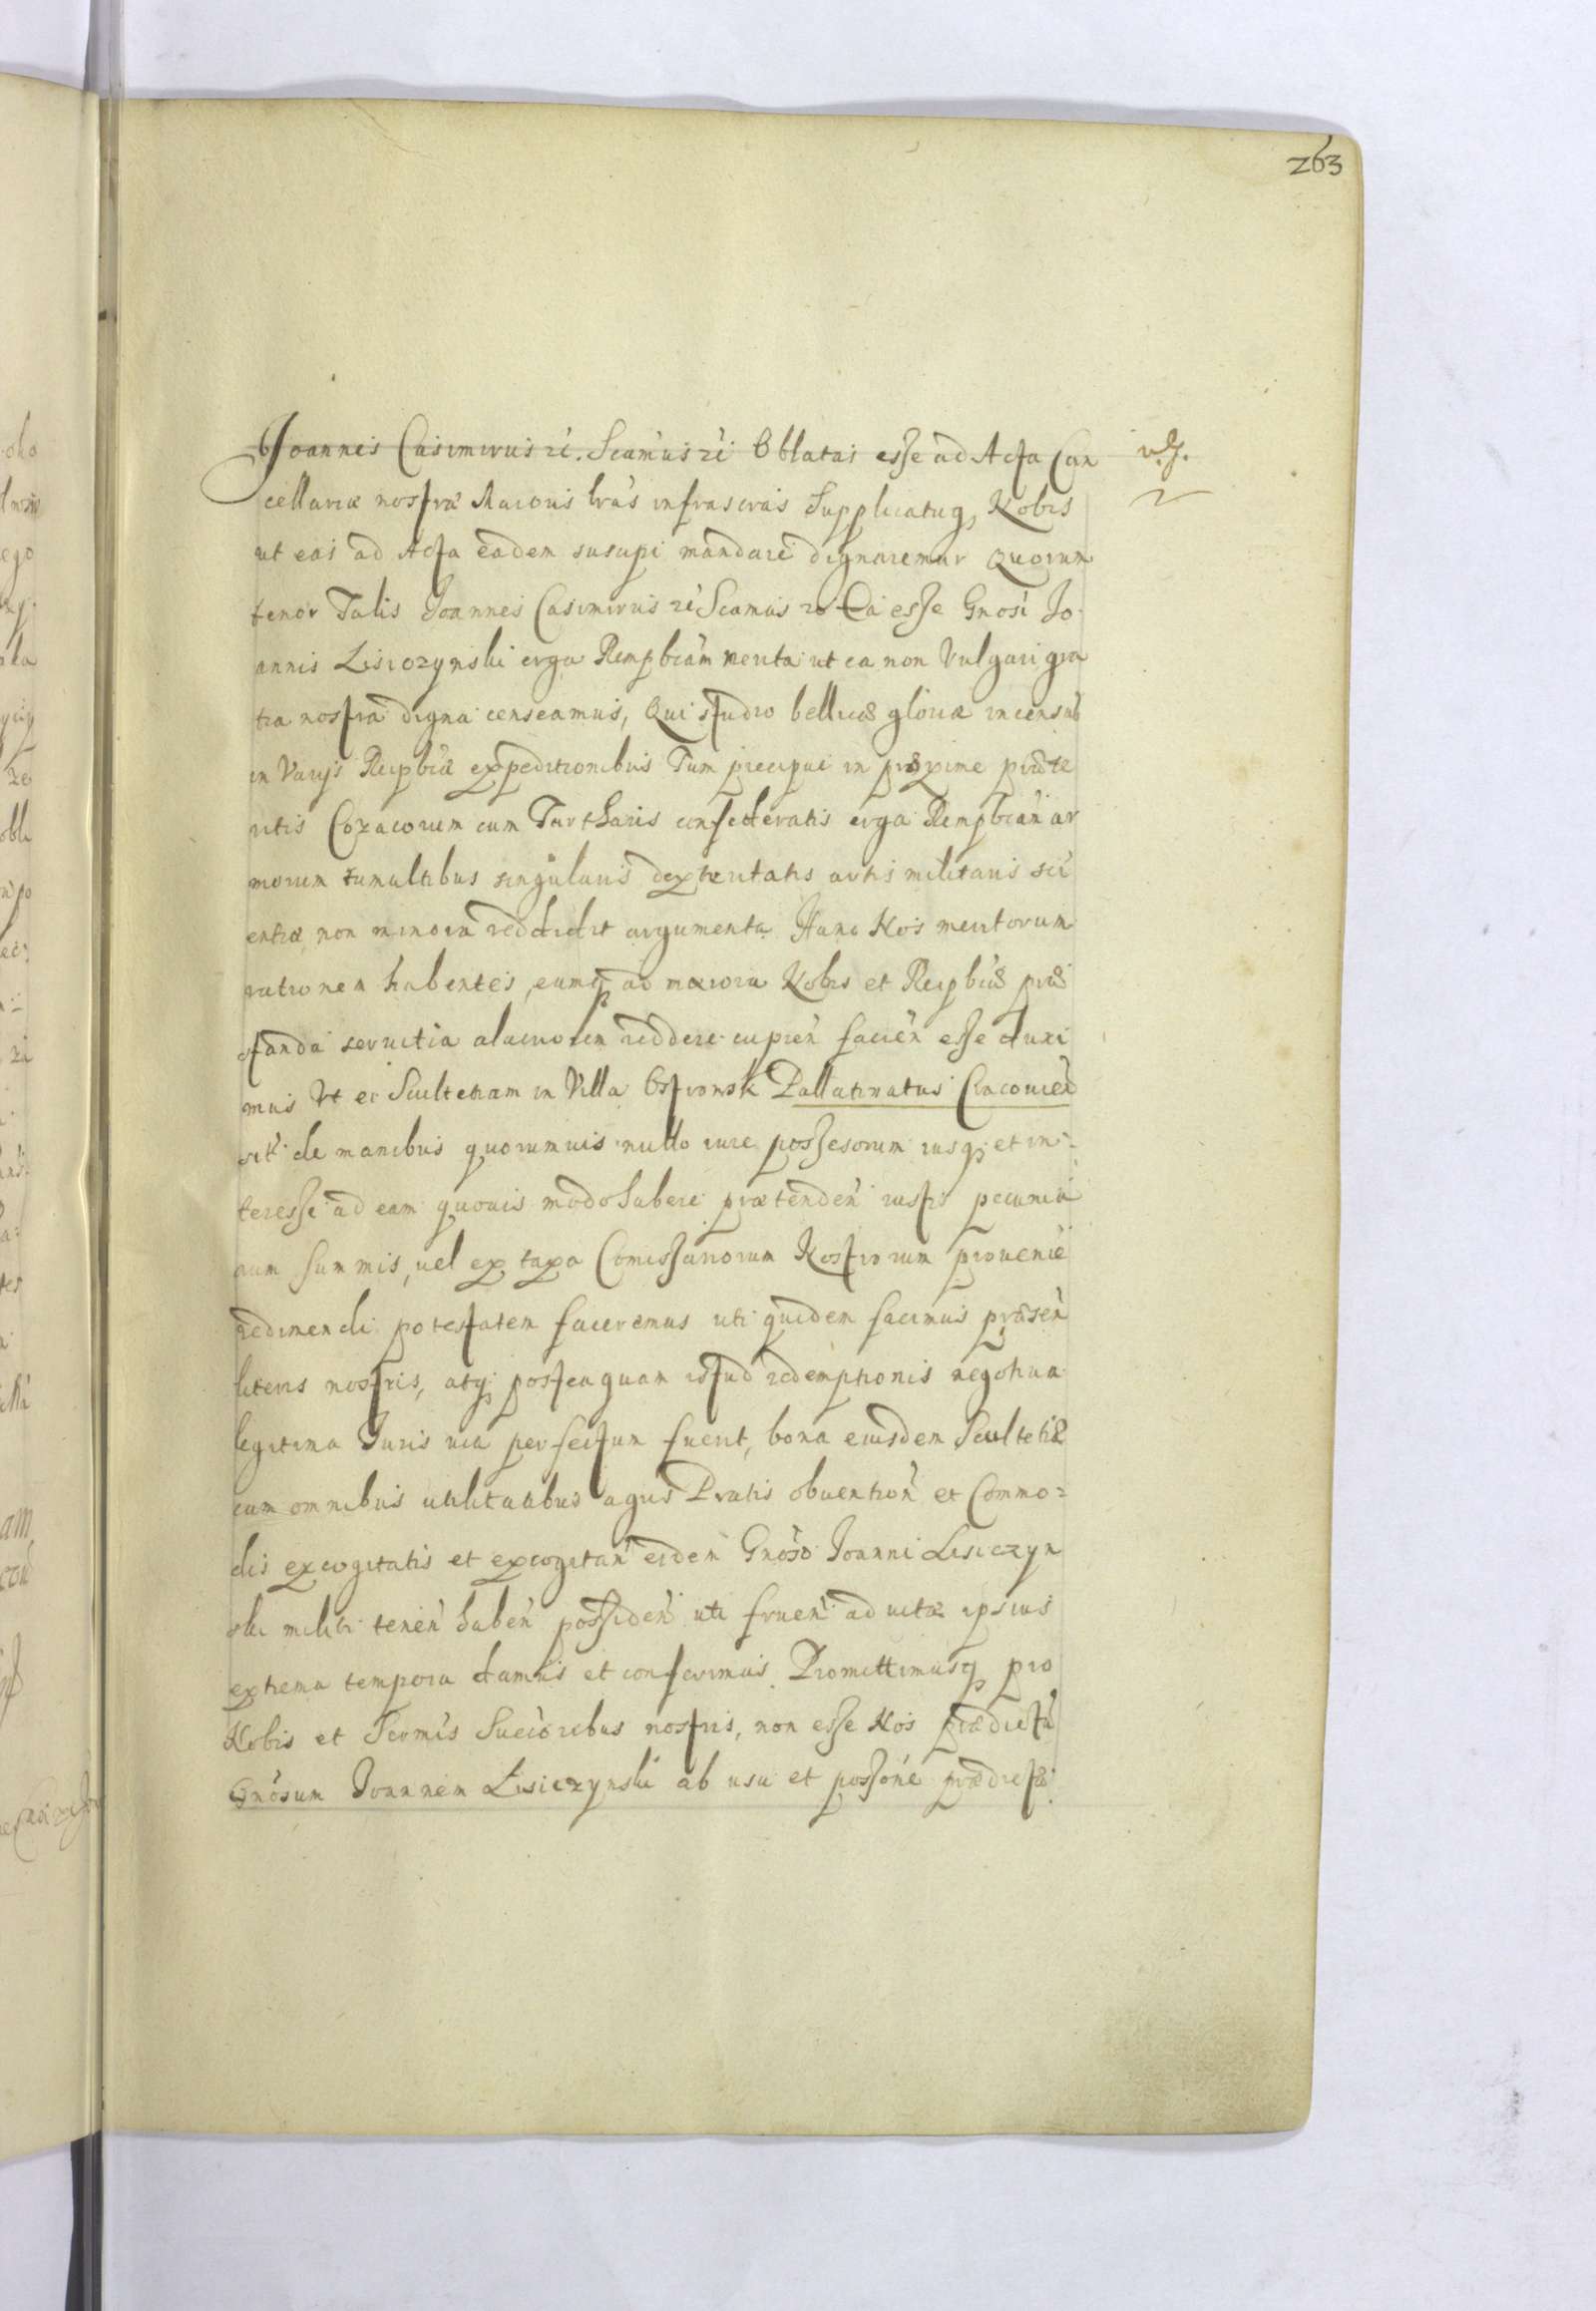 263
Joannes Casimirus rc. Scamus rc Oblatas esse ad Acta Can
cellariæ nostræ Maioris lras infrascrās Supplicatuq Nobis
ut eas ad Acta eadem suscipi mandare dignaremur Quorum
tenor Talis Joannes Casimirus rc Scamus rc Ea esse Gnosi Jo
annis Lisiczynski erga Rempbcam merita ut ea non Vulgari gra
tia nostra digna censeamus, Qui studio bellicæ gloriæ incensus
in Varijs Reipbcæ expeditionibus Tum precipue in proxime præte
ritis Cozacorum cum Tartharis confederatis erga Rempbcam ar
morum tumultibus singularis dexteritatis artis militaris sci
entiæ non minora reddidit argumenta Hanc Nos meritorum
rationem habentes, eumq ad maiora Nobis et Reipbcæ præ
standa servitia alacriorem reddere cupien facien esse duxi
mus Vt ei Scultetiam in Villa Ostromsk Pallatinatus Cracovien
sit de manibus quorumvis nullo iure possesorum iusq et in-
teresse ad eam quovis modo habere prætenden iustis pecunia
rum summis, vel ex taxa Comissariorum Nostrorum provenie
redimendi potestatem faceremus uti quidem facimus præsen
literis nostris, atq posteaquam istud redemptionis negotium
legitima Juris via perfectum fuerit, bona eiusdem Scultetiæ
cum omnibus utilitatibus agris Pratis obvention et Commo=
dis excogitatis et excogitan eidem Gnoso Joanni Lisiczyn
ski militi tenen haben possiden uti fruen ad vitæ ipsius
extrema tempora damus et conferimus Promittimusq pro
Nobis et Sermis Succoribus nostris, non esse Nos prædictu
Gnosum Joannem Lisiczynski ab usu et possone prædictæ